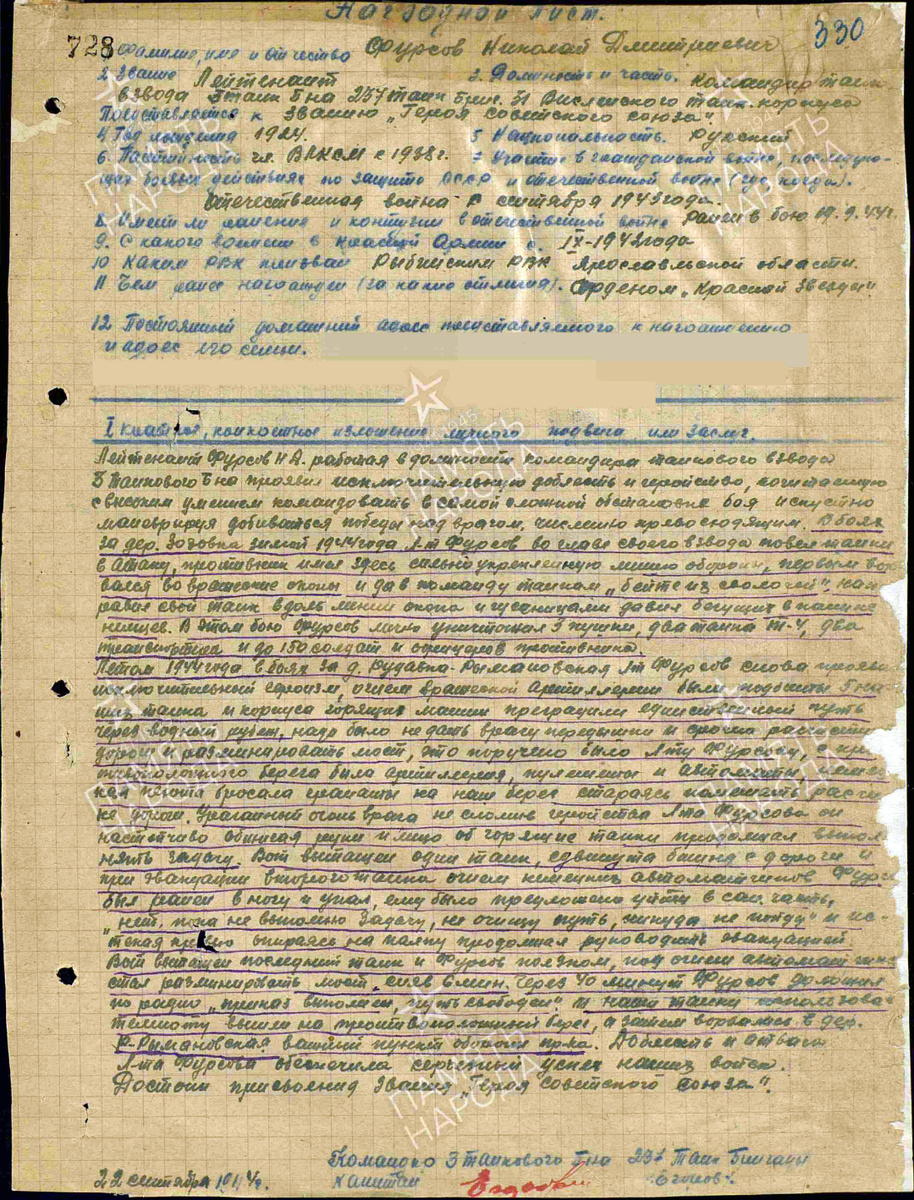 Наградной лист.
330
728 Фамилия, имя и отчество Фурсов Николай Дмитриевич
2 Звание Лейтенант 3. Должность и часть. командир танк.
взвода 3 танк б-на 237 танк бриг. 31 Вислинского танк. корпуса
Представляется к званию „Героя Советского союза".
4 Год рождения 1924. 5 Национальность. Русский
6 Партийность чл. ВЛКСМ с 1938г. 7 Участие в гражданской войне, последую-
щих боевых действиях по защите СССР и отечественной войне (где, когда).
Отечественная война с сентября 1943 года.
8 Имеет ли ранения и контузии в отечественной войне ранен в бою 19.9.44г.
9. С какого времени в Красной Армии с. IX-1942 года
10 Каким РВК призван Рыбинским РВК Ярославской области.
11 Чем ранее награжден (за какие отличия). Орденом „Красной Звезды".
12 Постоянный домашний адрес представляемого к награждению
и адрес его семьи.
I Краткое, конкретное изложение личного подвига или заслуг.
Лейтенант Фурсов Н.Д. работая в должности командира танкового взвода
3 танкового б-на проявил исключительную доблесть и геройство, сочетающую
с высоким умением командовать в самой сложной обстановке боя искусстно
маневрируя добиваться победы над врагом, численно превосходящим. В боях
за дер. зимой 1944 года Л-т Фурсов во главе своего взвода повел танки
в атаку, противник имел здесь сильно укрепленную линию обороны, первым вор-
вался во вражеские окопы и дав команду танкам „бейте их сволочей", нап-
равил свой танк вдоль линии окопа и гусеницами давил бегущих в панике
немцев. В этом бою Фурсов лично уничтожил 3 пушки, два танка Т-4, два
транспортера и до 150 солдат и офицеров противника.
Летом 1944 года в боях за д. Рудавка-Рымановская Л-т Фурсов снова проявил
исключительный героизм, огнем вражеской артиллерии были подбиты 5 на-
ших танка и корпуса горящих машин преградили единственный путь
через водный рубеж, надо было не дать врагу передышки и срочно расчистить
дорогу и разминировать мост, это поручено было Л-ту Фурсову, с про-
тивоположного берега била артиллерия, пулеметы и автоматы, немец-
кая пехота бросала гранаты на наш берег стараясь помешать расчис-
ке дороги. Ураганный огонь врага не сломил геройства Л-та Фурсова он
настойчиво обжигая руки и лицо об горящие танки продолжал выпол-
нять задачу. Вот вытащен один танк, сдвинута башня с дороги и
при эвакуации второго танка огнем немецких автоматчиков Фурсов
был ранен в ногу и упал, ему было предложено уйти в сан. часть,
„нет, пока не выполню задачу, не очищу путь, никуда не пойду" и ис-
текая кровью опираясь на палку продолжал руководить эвакуацией.
Вот вытащен последний танк и Фурсов ползком, под огнем автоматчиков
стал разминировать мост, сняв 6 мин. Через 40 минут Фурсов доложил
по радио „приказ выполнен, путь свободен" и наши танки использовав
темноту вышли на противоположный берег, а затем ворвались в дер.
Р-Рымановская важный пункт обороны пр-ка. Доблесть и отвага
Л-та Фурсова обеспечила серьезный успех наших войск.
Достоин присвоения звания „Героя Советского союза".
Командир 3 танкового б-на 237 Танк Бригады
Капитан Егоров
22 сентября 1944г.
ПАМЯТЬ НАРОДА